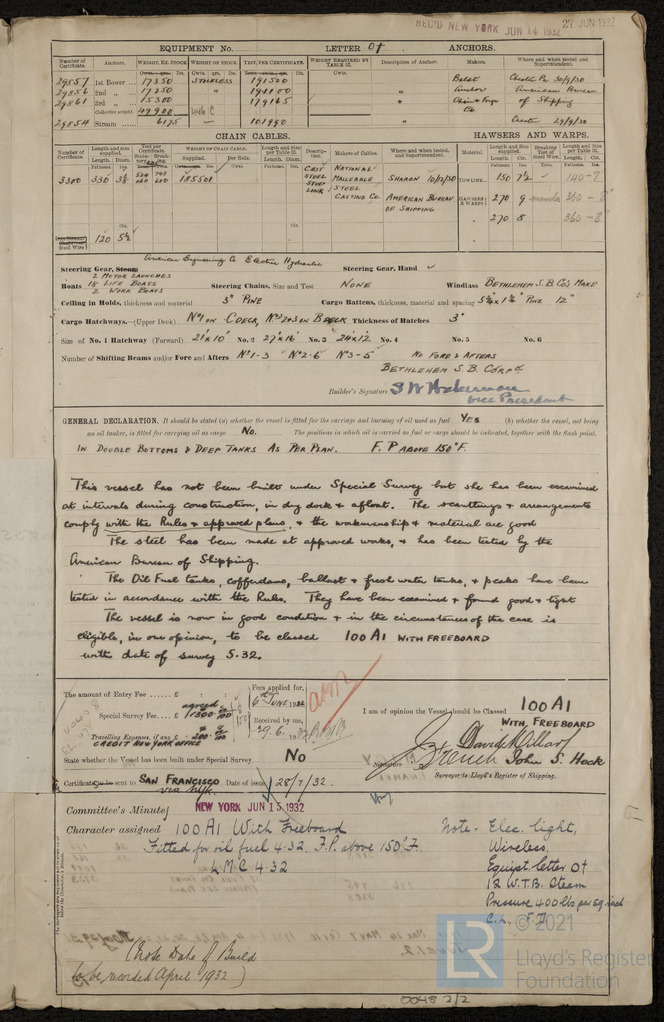 REC'D NEW YORK JUN 14 1932
27 JUN 1932
EQUIPMENT No. LETTER O† ANCHORS.
Number of Certificate. Anchors. WEIGHT, EX. STOCK WEIGHT OF STOCK. TEST, PER CERTIFICATE. WEIGHT REQUIRED BY TABLE 53. Description of Anchor. Makers. Where and when tested and Superintendent.
29857 1st Bower 17350 STOCKLESS 191520 Baldt Chester Pa 30/9/30
29856 2nd " 17250 " " Anchor American Bureau
29861 3rd " 15300 " 179165 " Chain & Forge of Shipping
Collective weight. 49900 Co
29854 Stream 6175 101990 " Chester 29/9/30
CHAIN CABLES. HAWSERS AND WARPS.
Number of Certificate. Length and size supplied. Test per Certificate. WEIGHT OF CHAIN CABLE. Length and Size per Table 53. Description. Makers of Cables. Where and when tested, and Superintendent. Material Length and Size supplied. Breaking Test of Steel Wire. Length and Size per Table 53.
3300 330 185501 CAST STEEL STUD LINK NATIONAL MALLEABLE & STEEL CASTING Co. SHARON 10/12/30 AMERICAN BUREAU OF SHIPPING TOWLINE 150 7½ 140-7
HAWSERS & WARPS 270 9 manila 360-8"
270 8 360-8"
120 5½
American Engineering Co Electric Hydraulic
Steering Gear, Steam Steering Gear, Hand
2 MOTOR LAUNCHES
Boats 18 LIFE BOATS Steering Chains, Size and Test NONE Windlass BETHLEHEM S.B. Co's MAKE
2 WORK BOATS
Ceiling in Holds, thickness and material 3" PINE Cargo Battens, thickness, material and spacing 5¾ x 1¾" PINE 12"
Cargo Hatchways.—(Upper Deck) No 1 ON C DECK, Nos 2 & 3 ON B DECK Thickness of Hatches 3"
Size of No. 1 Hatchway (Forward) 21' x 10' No. 2 27' x 16' No. 3 24' x 12' No. 4 No. 5 No. 6
Number of Shifting Beams and/or Fore and Afters No 1-3 No 2-6 No 3-5 No FORE & AFTERS
BETHLEHEM S. B. CORPn.
Builder's Signature S W Wakeman
Vice President
GENERAL DECLARATION. It should be stated (a) whether the vessel is fitted for the carriage and burning of oil used as fuel YES (b) whether the vessel, not being
an oil tanker, is fitted for carrying oil as cargo No. The positions in which oil is carried as fuel or cargo should be indicated, together with the flash point.
IN DOUBLE BOTTOMS & DEEP TANKS AS PER PLAN. F. P ABOVE 150°F.
This vessel has not been built under Special Survey but she has been examined
at intervals during construction, in dry dock & afloat. The scantlings & arrangements
comply with the Rules & approved plans, & the workmanship & material are good
The steel has been made at approved works, & has been tested by the
American Bureau of Shipping.
The Oil Fuel tanks, cofferdams, ballast & fresh water tanks, & peaks have been
tested in accordance with the Rules. They have been examined & found good & tight
The vessel is now in good condition & in the circumstances of the case is
eligible, in our opinion, to be classed 100 A1 WITH FREEBOARD
with date of survey 5.32.
The amount of Entry Fee ...... £ : : Fees applied for,
6th JUNE 1932
agreed
Special Survey Fee .... £ 1300
Received by me,
29.6.1932
Travelling Expenses, if any £ 200
CREDIT NEW YORK OFFICE
I am of opinion the Vessel should be Classed 100 A1
WITH FREEBOARD
David Millar
J. French John S. Heck
Signature
Surveyor to Lloyd's Register of Shipping.
State whether the Vessel has been built under Special Survey No
Certificate to be sent to SAN FRANCISCO Date of issue 28/7/32.
via NYK
Committee's Minute NEW YORK JUN 15 1932
Character assigned 100 A1 With Freeboard
Fitted for oil fuel 4.32. F.P. above 150°F.
LMC 4.32
Note- Elec. light,
Wireless,
Equipt. letter O†
12 W.T.B. Steam
Pressure 400 lbs per sq. inch
C.L. F.D.
(Note Date of Build
to be recorded April 1932)
© 2021
LR
Lloyd's Register
Foundation
0048 2/2